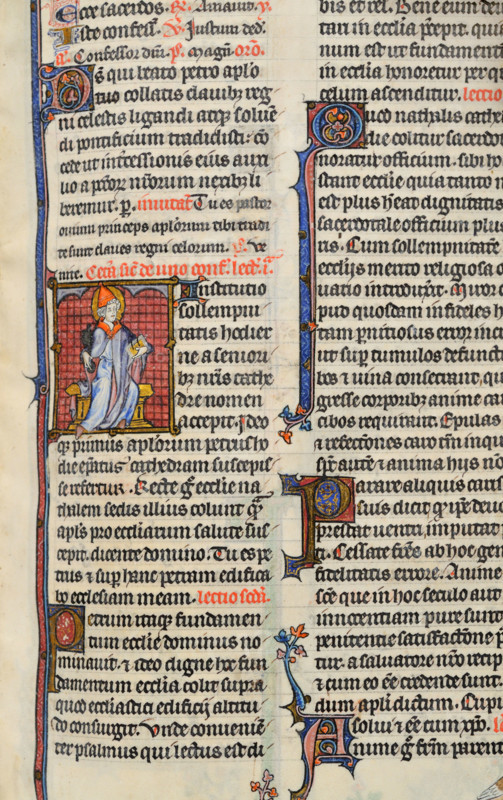 Ecce sacerdos. R. Amauit. V.
Iste confess. V. Iustum ded.
a. Confessor dni. p. magn. oro.
Ds qui beato petro aplo
tuo collatis clauibz reg
ni celestis ligandi atqz soluē
di pontificium tradidisti: cō
cede ut intcessionis eius auxi
lio a pctorz nrorum nexibz li
beremur. p. inuitat Tu es pastor
ouium princeps aplorum tibi tradi
te sunt claues regni celorum. Ve
nite. Cetā sic de uno conf. lect. i.
Institutio
sollempni
tatis hodier
ne a seniori
bz nris cathe
dre nomen
accepit. Ideo
qz primus aplorum petrus ho
die epatus cathedram suscepis
se refertur. Recte g ecclie na
thalem sedis illius colunt qm
apls pro eccliarum salute sus
cepit. dicente domino. Tu es pe
trus & sup hanc petram edifica
bo ecclesiam meam. lectio scda.
Petrum itaqz fundamen
tum ecclie dominus no
minauit. & ideo digne hoc fun
damentum ecclia colit supra
quod ecclesiastici edificij altitu
do consurgit. Vnde conuenien
ter psalmus qui lectus est di
bis et rel. Bene eum
tari in ecclia
num est ut fundament
in ecclia honoretur per q
celum ascenditur. lectio
Quod nathalis cathe
die colitur sacerdo
noratur officium. sibi ho
stant ecclie quia tanto
est plus heat dignitatis
sacerdotale officium plus
tis. Cum sollempnitate
ecclijs merito religiosa
uatio introduxit. Miror
pud quosdam infideles h
tam pniciosus error
ut sup tumulos defunct
bos & uina consecrant. qu
gresse corporibz anime car
cibos requirant. Epulas
& refectiones caro tm inqui
sps aute & anima hijs no
Parare aliquis caris
suis dicit qz ipe deuo
prestat uentri imputat
ti. Cessate fres ab hoc gen
fidelitatis errore. Anime
sce que in hoc seculo aut
innocentiam pure sunt
penitentie satisfactione
tur. a saluatore nro recip
& cum eo ee credende sunt.
dum apli dictum. Cupi
Asolui & ee cum xpo.
Anime g frm parent